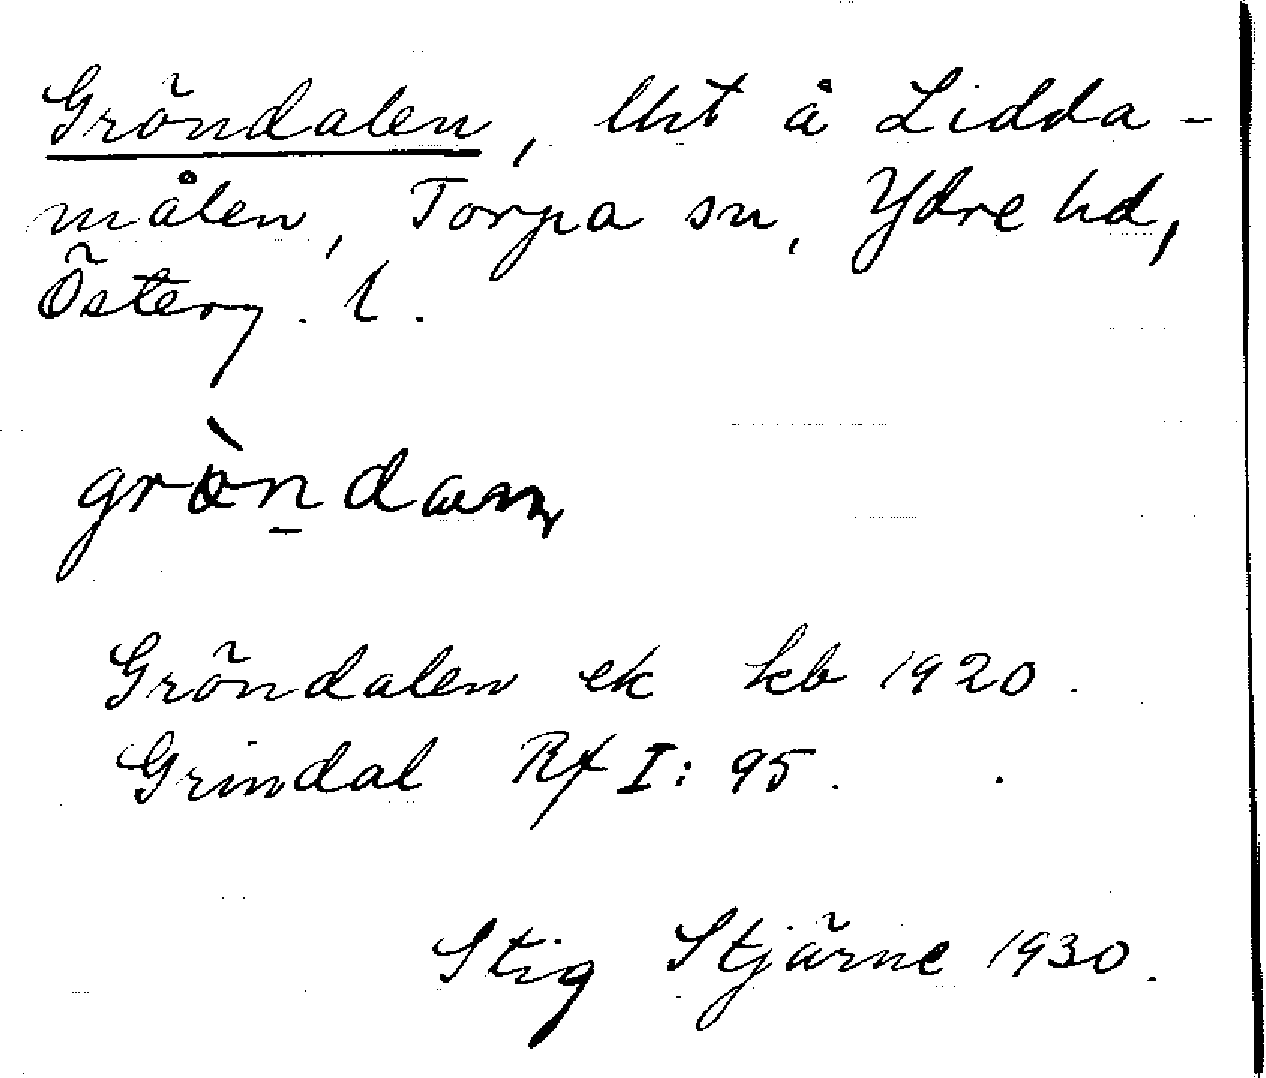 Gröndalen, lht å Lidda-
målen, Torpa sn, Ydre hd,
Österg. l.
Gröndalen ek kb 1920.
Grindal Rf I: 95.
Stig Stjärne 1930.